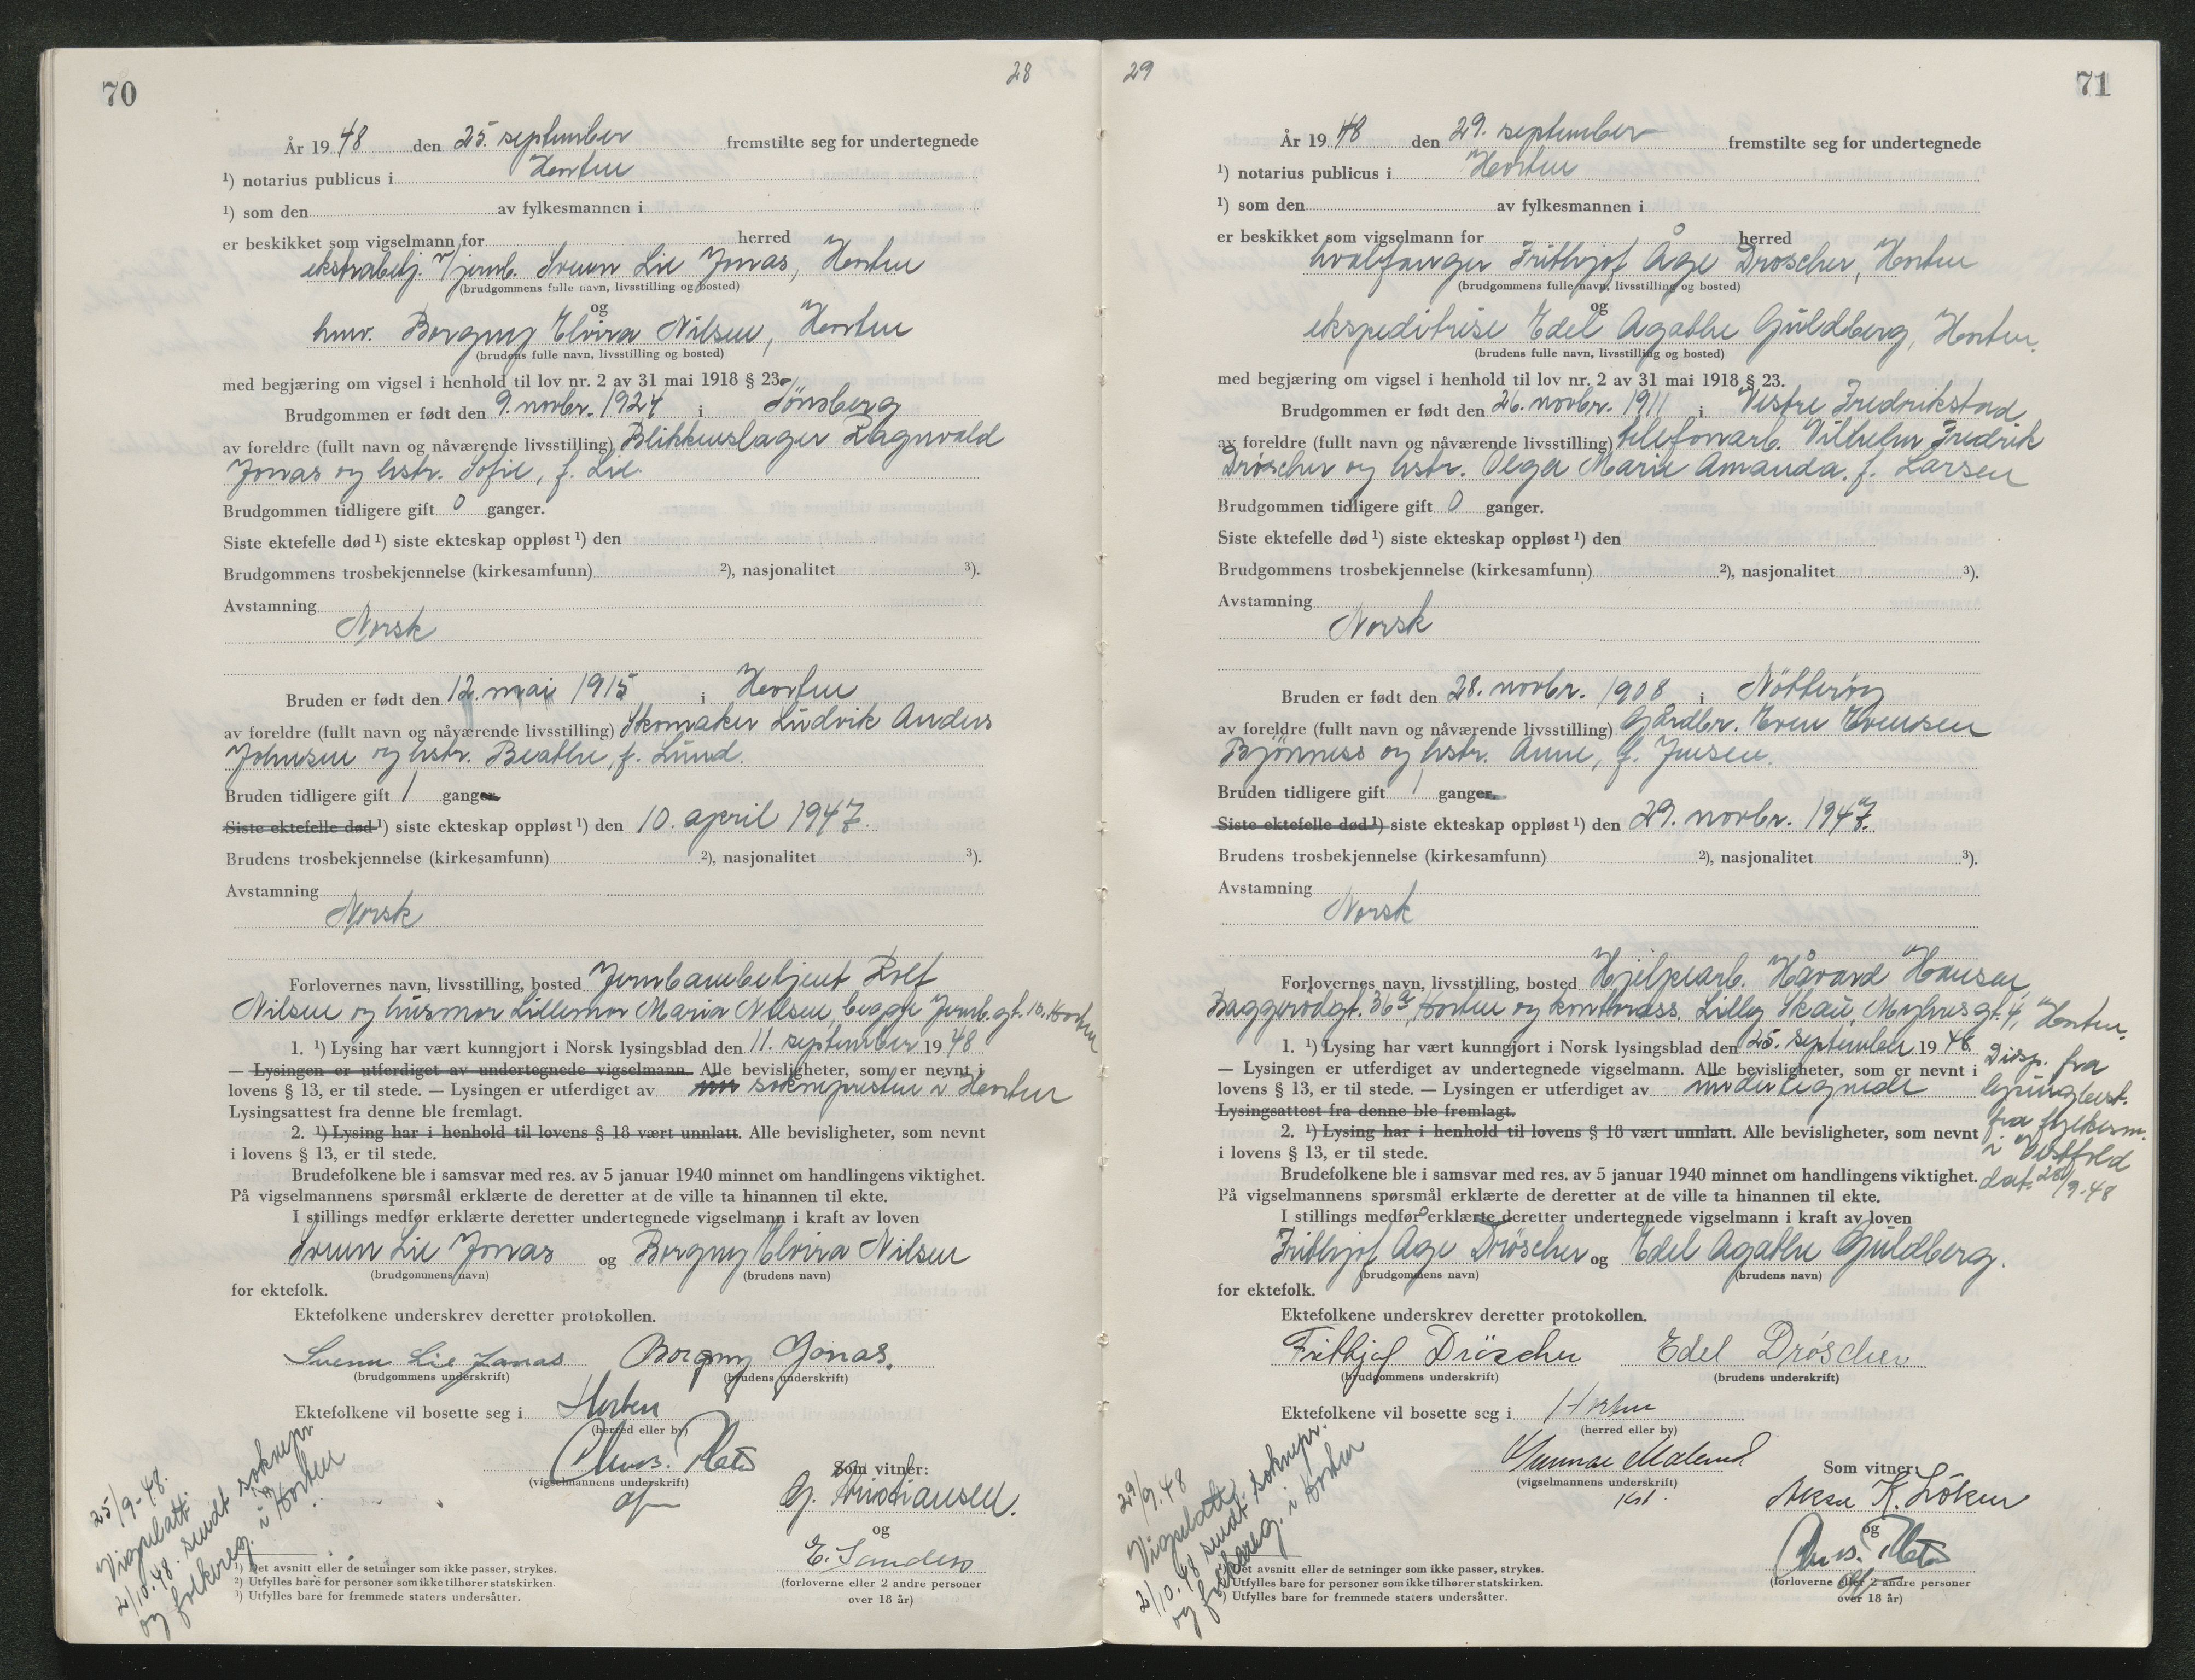 70
28
År 19 48 den 25. september fremstilte seg for undertegnede
¹) notarius publicus i Horten
¹) som den av fylkesmannen i
er beskikket som vigselmann for herred
ekstrabetj. v/jernb. Svenn Lie Jonas, Horten
(brudgommens fulle navn, livsstilling og bosted)
og
hmv. Borgny Elvira Nilsen, Horten
(brudens fulle navn, livsstilling og bosted)
med begjæring om vigsel i henhold til lov nr. 2 av 31 mai 1918 § 23.
Brudgommen er født den 9. novbr. 1924 i Tönsberg
av foreldre (fullt navn og nåværende livsstilling) Blikkenslager Ragnvald
Jonas og hstr. Sofie, f. Lie.
Brudgommen tidligere gift 0 ganger.
Siste ektefelle død ¹) siste ekteskap oppløst ¹) den
Brudgommens trosbekjennelse (kirkesamfunn) ²), nasjonalitet ³).
Avstamning
Norsk
Bruden er født den 12. mai 1915 i Horten
av foreldre (fullt navn og nåværende livsstilling) Skomaker Ludvik Anders
Johnsen og hstr. Beathe, f. Lund.
Bruden tidligere gift 1 ganger
Siste ektefelle død ¹) siste ekteskap oppløst ¹) den 10. april 1947.
Brudens trosbekjennelse (kirkesamfunn) ²), nasjonalitet ³).
Avstamning
Norsk
Forlovernes navn, livsstilling, bosted Jernbanebetjent Rolf
Nilsen og husmor Lillemor Maria Nilsen, begge Jernb.gt. 10. Horten
1. ¹) Lysing har vært kunngjort i Norsk lysingsblad den 11. september 19 48
— Lysingen er utferdiget av undertegnede vigselmann. Alle bevisligheter, som er nevnt i
lovens § 13, er til stede. — Lysingen er utferdiget av soknepresten i Horten
Lysingsattest fra denne ble fremlagt.
2. ¹) Lysing har i henhold til lovens § 18 vært unnlatt. Alle bevisligheter, som nevnt
i lovens § 13, er til stede.
Brudefolkene ble i samsvar med res. av 5 januar 1940 minnet om handlingens viktighet.
På vigselmannens spørsmål erklærte de deretter at de ville ta hinannen til ekte.
I stillings medfør erklærte deretter undertegnede vigselmann i kraft av loven
Svenn Lie Jonas og Borgny Elvira Nilsen
(brudgommens navn) (brudens navn)
for ektefolk.
Ektefolkene underskrev deretter protokollen.
Svenn Lie Jonas Borgny Jonas.
(brudgommens underskrift) (brudens underskrift)
Ektefolkene vil bosette seg i Horten
(herred eller by)
(vigselmannens underskrift)
Som vitner:
G. Kristiansen.
og
E. Sanders
(forloverne eller 2 andre personer
over 18 år)
25/9-48.
Vigselatt.
2/10.48. sendt soknepr
og folkereg. i Horten
¹) Det avsnitt eller de setninger som ikke passer, strykes.
²) Utfylles bare for personer som ikke tilhører statskirken.
³) Utfylles bare for fremmede staters undersåtter.
29
71
År 19 48 den 29. september fremstilte seg for undertegnede
¹) notarius publicus i Horten
¹) som den av fylkesmannen i
er beskikket som vigselmann for herred
hvalfanger Frithjof Åge Dröscher, Horten
(brudgommens fulle navn, livsstilling og bosted)
og
ekspeditrise Edel Agathe Guldberg, Horten.
(brudens fulle navn, livsstilling og bosted)
med begjæring om vigsel i henhold til lov nr. 2 av 31 mai 1918 § 23.
Brudgommen er født den 26. novbr. 1911 i Vestre Fredrikstad
av foreldre (fullt navn og nåværende livsstilling) telefonarb. Vilhelm Fredrik
Dröscher og hstr. Olga Marie Amanda, f. Larsen
Brudgommen tidligere gift 0 ganger.
Siste ektefelle død ¹) siste ekteskap oppløst ¹) den
Brudgommens trosbekjennelse (kirkesamfunn) ²), nasjonalitet ³).
Avstamning
Norsk
Bruden er født den 28. novbr. 1908 i Nötteröy
av foreldre (fullt navn og nåværende livsstilling) Gårdbr. Even Evensen
Bjönness og hstr. Anne, f. Jensen.
Bruden tidligere gift 1 ganger
Siste ektefelle død ¹) siste ekteskap oppløst ¹) den 29. novbr. 1947.
Brudens trosbekjennelse (kirkesamfunn) ²), nasjonalitet ³).
Avstamning
Norsk
Forlovernes navn, livsstilling, bosted Hjelpearb. Håvard Hansen,
Baggerödgt. 36a, Horten og kontorass. Lilly Skau, Myhresgt. 4, Horten.
1. ¹) Lysing har vært kunngjort i Norsk lysingsblad den 25. september 19 48.
— Lysingen er utferdiget av undertegnede vigselmann. Alle bevisligheter, som er nevnt i
lovens § 13, er til stede. — Lysingen er utferdiget av undertegnede
Lysingsattest fra denne ble fremlagt.
2. ¹) Lysing har i henhold til lovens § 18 vært unnlatt. Alle bevisligheter, som nevnt
i lovens § 13, er til stede.
Disp. fra
lysingbest.
fra fylkesm.
i Vestfold
dat. 28/9-48
Brudefolkene ble i samsvar med res. av 5 januar 1940 minnet om handlingens viktighet.
På vigselmannens spørsmål erklærte de deretter at de ville ta hinannen til ekte.
I stillings medfør erklærte deretter undertegnede vigselmann i kraft av loven
Frithjof Åge Dröscher og Edel Agathe Guldberg.
(brudgommens navn) (brudens navn)
for ektefolk.
Ektefolkene underskrev deretter protokollen.
Frithjof Dröscher Edel Dröscher
(brudgommens underskrift) (brudens underskrift)
Ektefolkene vil bosette seg i Horten
(herred eller by)
Gunnar Malerud
(vigselmannens underskrift)
kst.
Som vitner:
K. Löken
og
(forloverne eller 2 andre personer
over 18 år)
29/9.48
Vigselatt.
2/10.48 sendt soknepr.
og folkereg. i Horten
¹) Det avsnitt eller de setninger som ikke passer, strykes.
Utfylles bare for personer som ikke tilhører statskirken.
Utfylles bare for fremmede staters undersåtter.